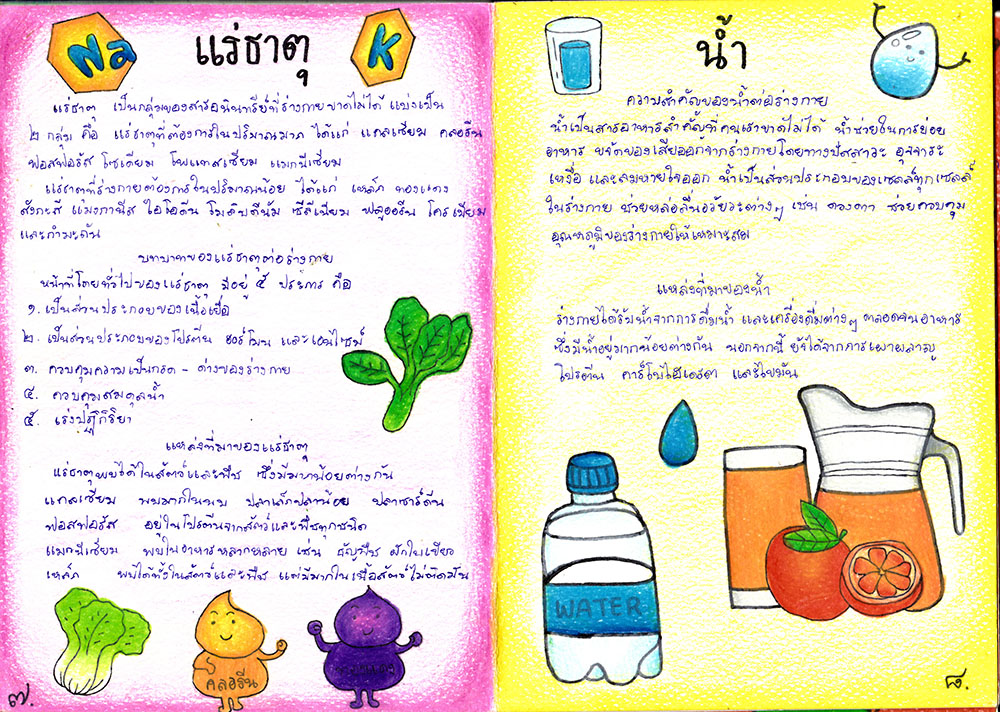 Na
แร่ธาตุ
K
แร่ธาตุ เป็นกลุ่มของสารอนินทรีย์ที่ร่างกายขาดไม่ได้ แบ่งเป็น
๒ กลุ่ม คือ แร่ธาตุที่ต้องการในปริมาณมาก ได้แก่ แคลเซียม คลอรีน
ฟอสฟอรัส โซเดียม โพแทสเซียม แมกนีเซียม
แร่ธาตุที่ร่างกายต้องการในปริมาณน้อย ได้แก่ เหล็ก ทองแดง
สังกะสี แมงกานีส ไอโอดีน โมลิบดีนัม ซีลีเนียม ฟลูออรีน โครเมียม
และกำมะถัน
บทบาทของแร่ธาตุต่อร่างกาย
หน้าที่โดยทั่วไปของแร่ธาตุ มีอยู่ ๕ ประการ คือ
๑. เป็นส่วนประกอบของเนื้อเยื่อ
๒. เป็นส่วนประกอบของโปรตีน ฮอร์โมน และเอนไซม์
๓. ควบคุมความเป็นกรด - ด่างของร่างกาย
๔. ควบคุมสมดุลน้ำ
๕. เร่งปฏิกิริยา
แหล่งที่มาของแร่ธาตุ
แร่ธาตุพบได้ในสัตว์และพืช ซึ่งมีมากน้อยต่างกัน
แคลเซียม พบมากในนม ปลาเล็กปลาน้อย ปลาซาร์ดีน
ฟอสฟอรัส อยู่ในโปรตีนจากสัตว์และพืชทุกชนิด
แมกนีเซียม พบในอาหารหลากหลาย เช่น ธัญพืช ผักใบเขียว
เหล็ก พบได้ทั้งในสัตว์และพืช แต่มีมากในเนื้อสัตว์ไม่ติดมัน
คลอรีน
๗.
น้ำ
ความสำคัญของน้ำต่อร่างกาย
น้ำเป็นสารอาหารสำคัญที่คนเราขาดไม่ได้ น้ำช่วยในการย่อย
อาหาร ขจัดของเสียออกจากร่างกายโดยทางปัสสาวะ อุจจาระ
เหงื่อ และลมหายใจออก น้ำเป็นส่วนประกอบของเซลล์ทุกเซลล์
ในร่างกาย ช่วยหล่อลื่นอวัยวะต่างๆ เช่น ดวงตา ช่วยควบคุม
อุณหภูมิของร่างกายให้เหมาะสม
แหล่งที่มาของน้ำ
ร่างกายได้รับน้ำจากการดื่มน้ำ และเครื่องดื่มต่างๆ ตลอดจนอาหาร
ซึ่งมีน้ำอยู่มากน้อยต่างกัน นอกจากนี้ ยังได้จากการเผาผลาญ
โปรตีน คาร์โบไฮเดรต และไขมัน
WATER
๘.